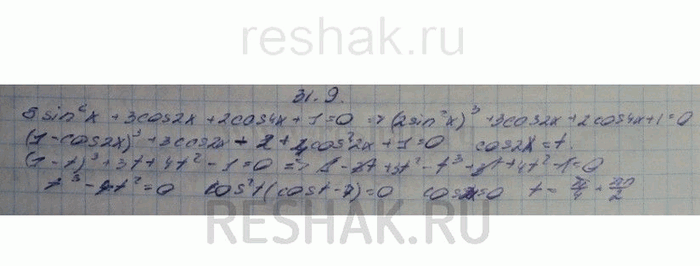 reshak.ru
31.9.
8sin⁶x + 3cos2x + 2cos4x + 1 = 0 ⇒ (2sin²x)³ + 3cos2x + 2cos4x + 1 = 0
(1 - cos2x)³ + 3cos2x - 2 + 4cos²2x + 1 = 0 cos2x = t.
(1 - t)³ + 3t + 4t² - 1 = 0 ⇒ 1 - 3t + 3t² - t³ + 3t + 4t² - 1 = 0
t³ - 7t² = 0 cos²t(cost - 7) = 0 cos2x = 0 t = π/4 + πn/2
RESHAK.RU